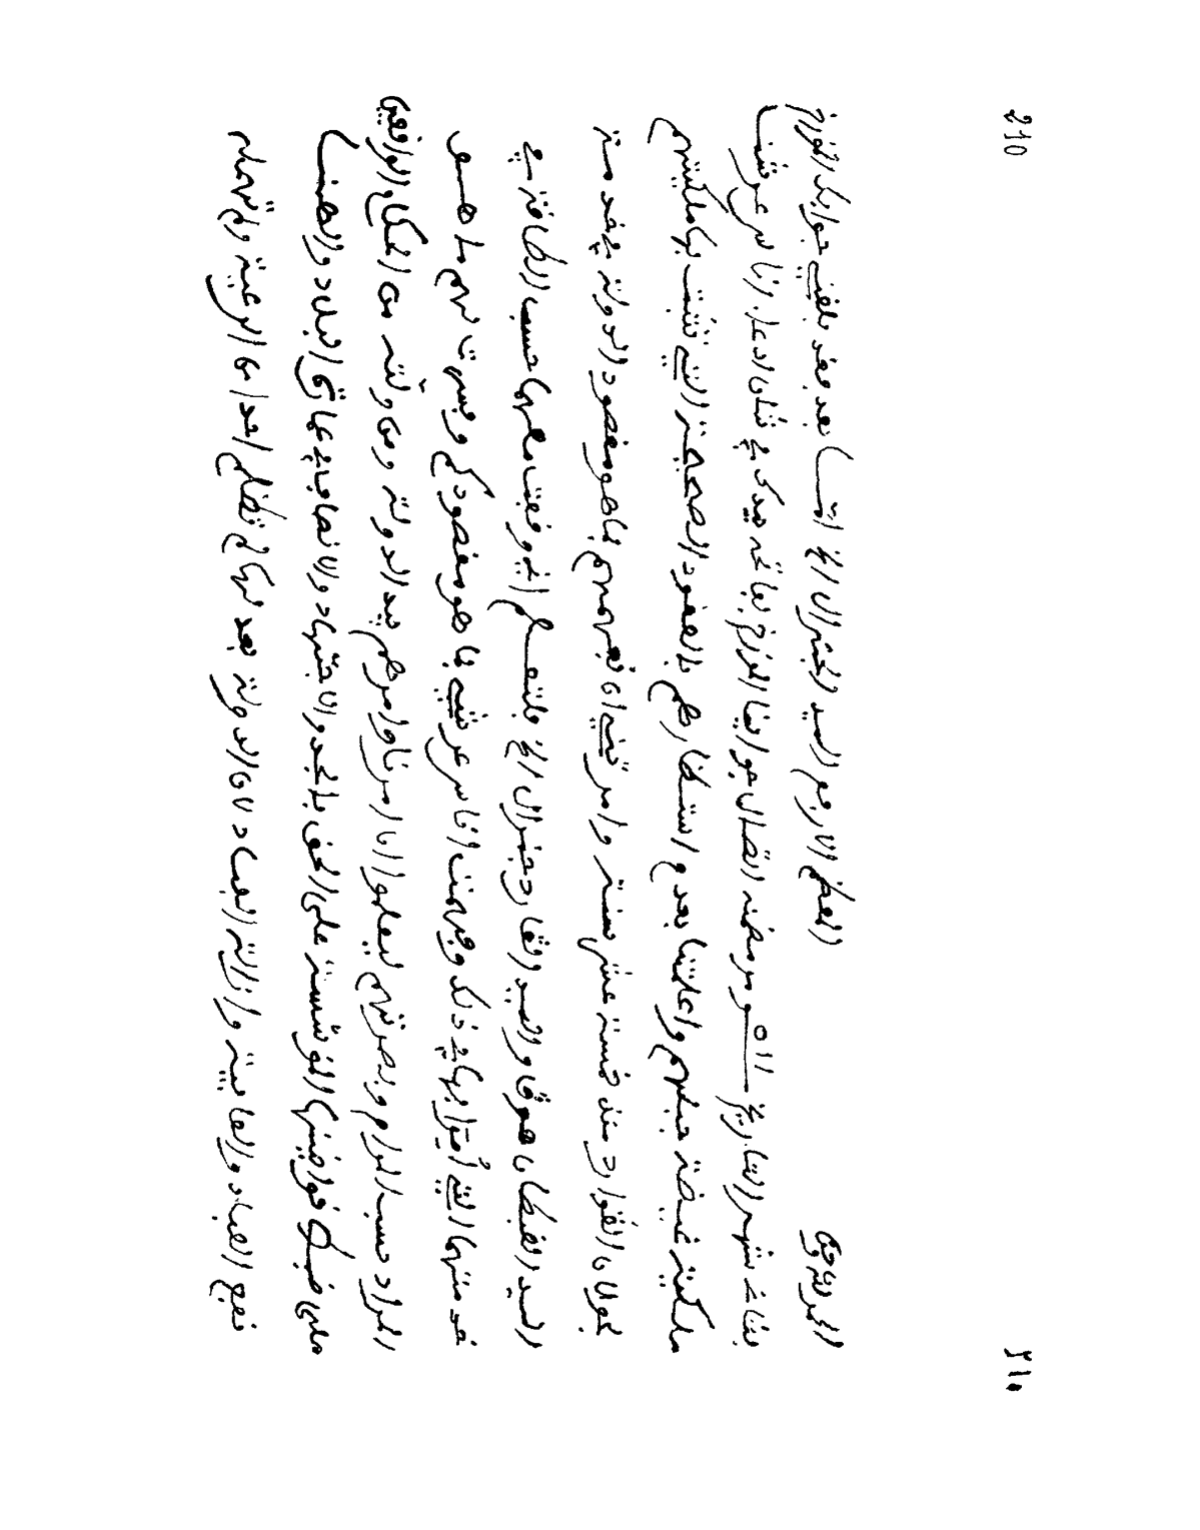 210
٢١٠
الحمد لله وحده
المعظم الارفع السيد الجنرال الخ امّـــا بعد فقد بلغني جوابك المؤرخ
بثالث شهر التاريخ ومن مضمنه اتصال جوابنا المؤرخ بفاتحه يدك في شان ادعاء اناس عرشنـــا
ملكية غيضة جبلهم واعلمتنا بعدم استظهارهم بالعقود الصحيحة التي تثبت بها ملكيتهم
خمسة عشر سنة وامرتني ان نفهمهم ما هو مقصود الدولة في خدمة
السيد القبطان هوڨا والسيد الڨارد جنرال الخ فلتعلــم اني وقفت معهما حسب الطاقة في
خدمتهما التي أمرا بها في ذلك وفهمت اناس عرشي ما هو مقصودكم وفسرت لهم ما هــو
المراد حسب المرام وبصرتهم ليعلموا ان امرنا وامرهم بيد الدولة ومن ولّته من الحكام الواقفين
على الحق بالجد والاجتهاد والانصاف
نفع العباد والعافية وازالة الفساد لان الدولة بعدلها لم تظلم احدا من الرعية ولم تهمله